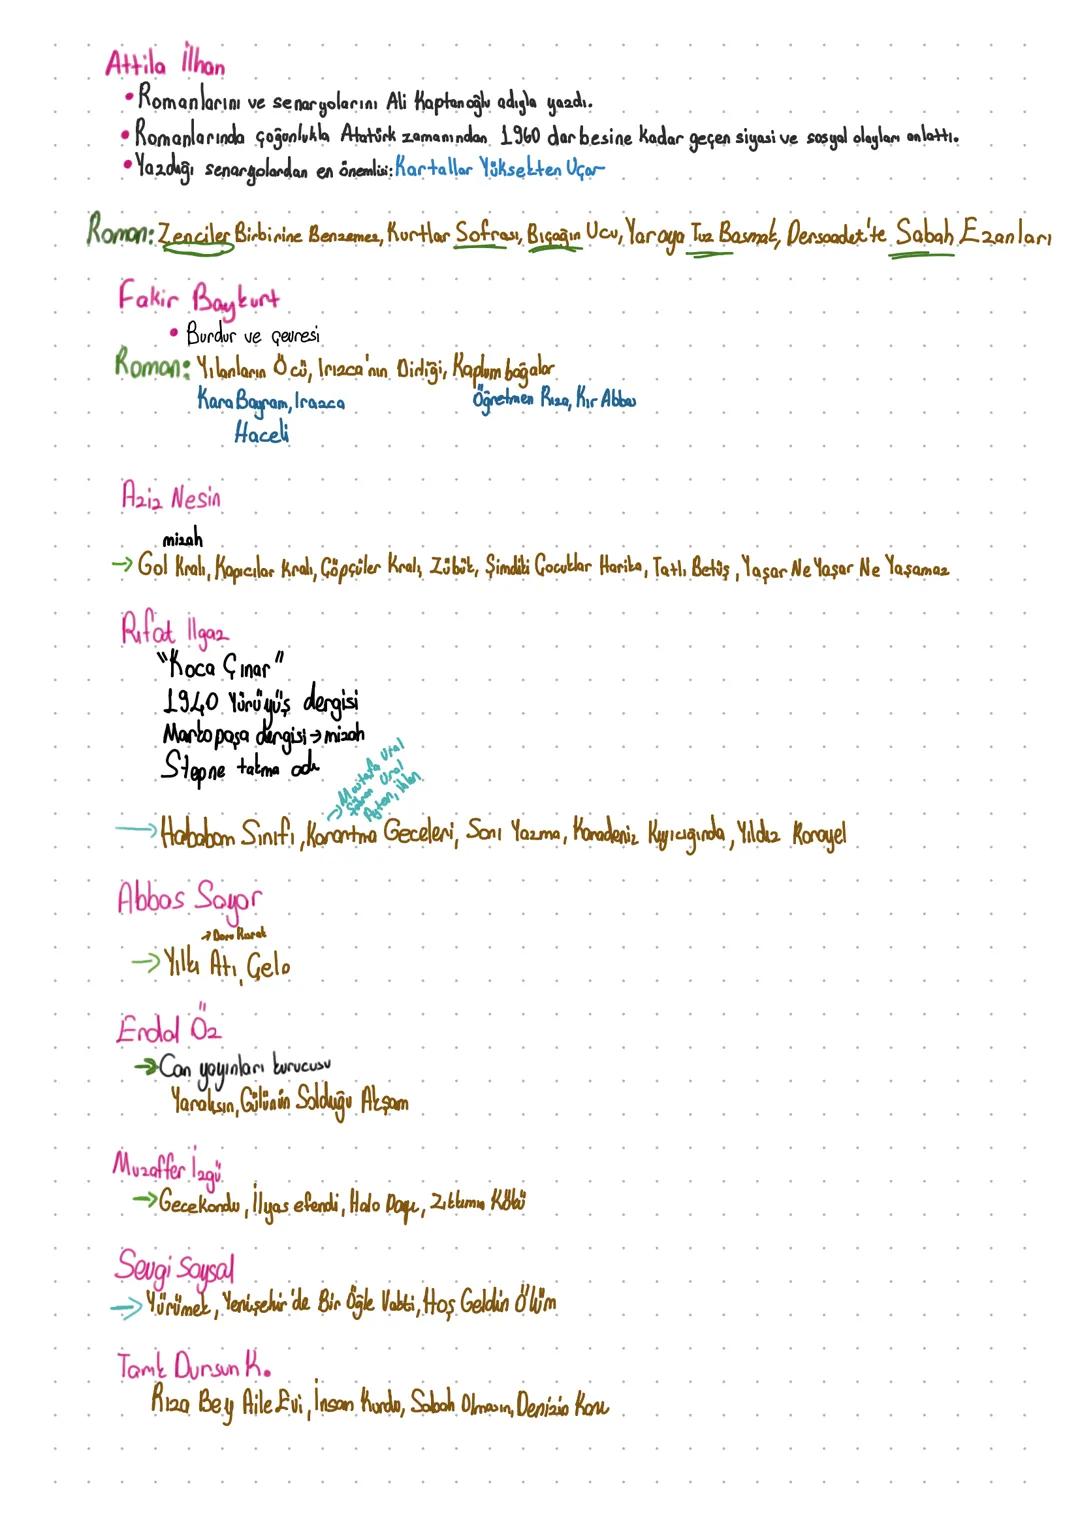 Attila İlhan
• Romanlarını ve senaryolarını Ali Kaptanoğlu adıyla yazdı.
• Romanlarında çoğunlukla Atatürk zamanından 1960 darbesine kadar geçen siyasi ve sosyal olayları anlattı.
• Yazdığı senaryolardan en önemlisi: Kartallar Yüksekten Uçar
Roman: Zenciler Birbirine Benzemez, Kurtlar Sofrası, Bıçağın Ucu, Yaraya Tuz Basmak, Dersaadet'te Sabah Ezanları
Fakir Baykurt
• Burdur ve çevresi
Roman: Yılanların Öcü, Irızca'nın Dirliği, Kaplumbağalar
Kara Bayram, Irazca Öğretmen Rıza, Kır Abbas
Haceli
Aziz Nesin
mizah
→ Gol Kralı, Kapıcılar Kralı, Çöpçüler Kralı, Zübük, Şimdiki Çocuklar Harika, Tatlı Betüş, Yaşar Ne Yaşar Ne Yaşamaz
Rıfat Ilgaz
"Koca Çınar"
1940 Yürüyüş dergisi
Markopaşa dergisi → mizah
Stepne takma adı
→ Mustafa Ural
Ural
→ Hababam Sınıfı, Karartma Geceleri, Sarı Yazma, Karadeniz Kıyıcığında, Yıldız Karayel
Abbas Sayar
→ Doru Kısrak
→ Yılkı Atı, Çelo
Erdal Öz
→ Can yayınları kurucusu
Yaralısın, Gülünün Solduğu Akşam
Muzaffer İzgü
→ Gecekondu, İlyas efendi, Halo Dayı, Zıkkımın Kökü
Sevgi Soysal
→ Yürümek, Yenişehir'de Bir Öğle Vakti, Hoş Geldin Ölüm
Tarık Dursun K.
Rıza Bey Aile Evi, İnsan Kurdu, Sabah Olmasın, Denizin Kanı